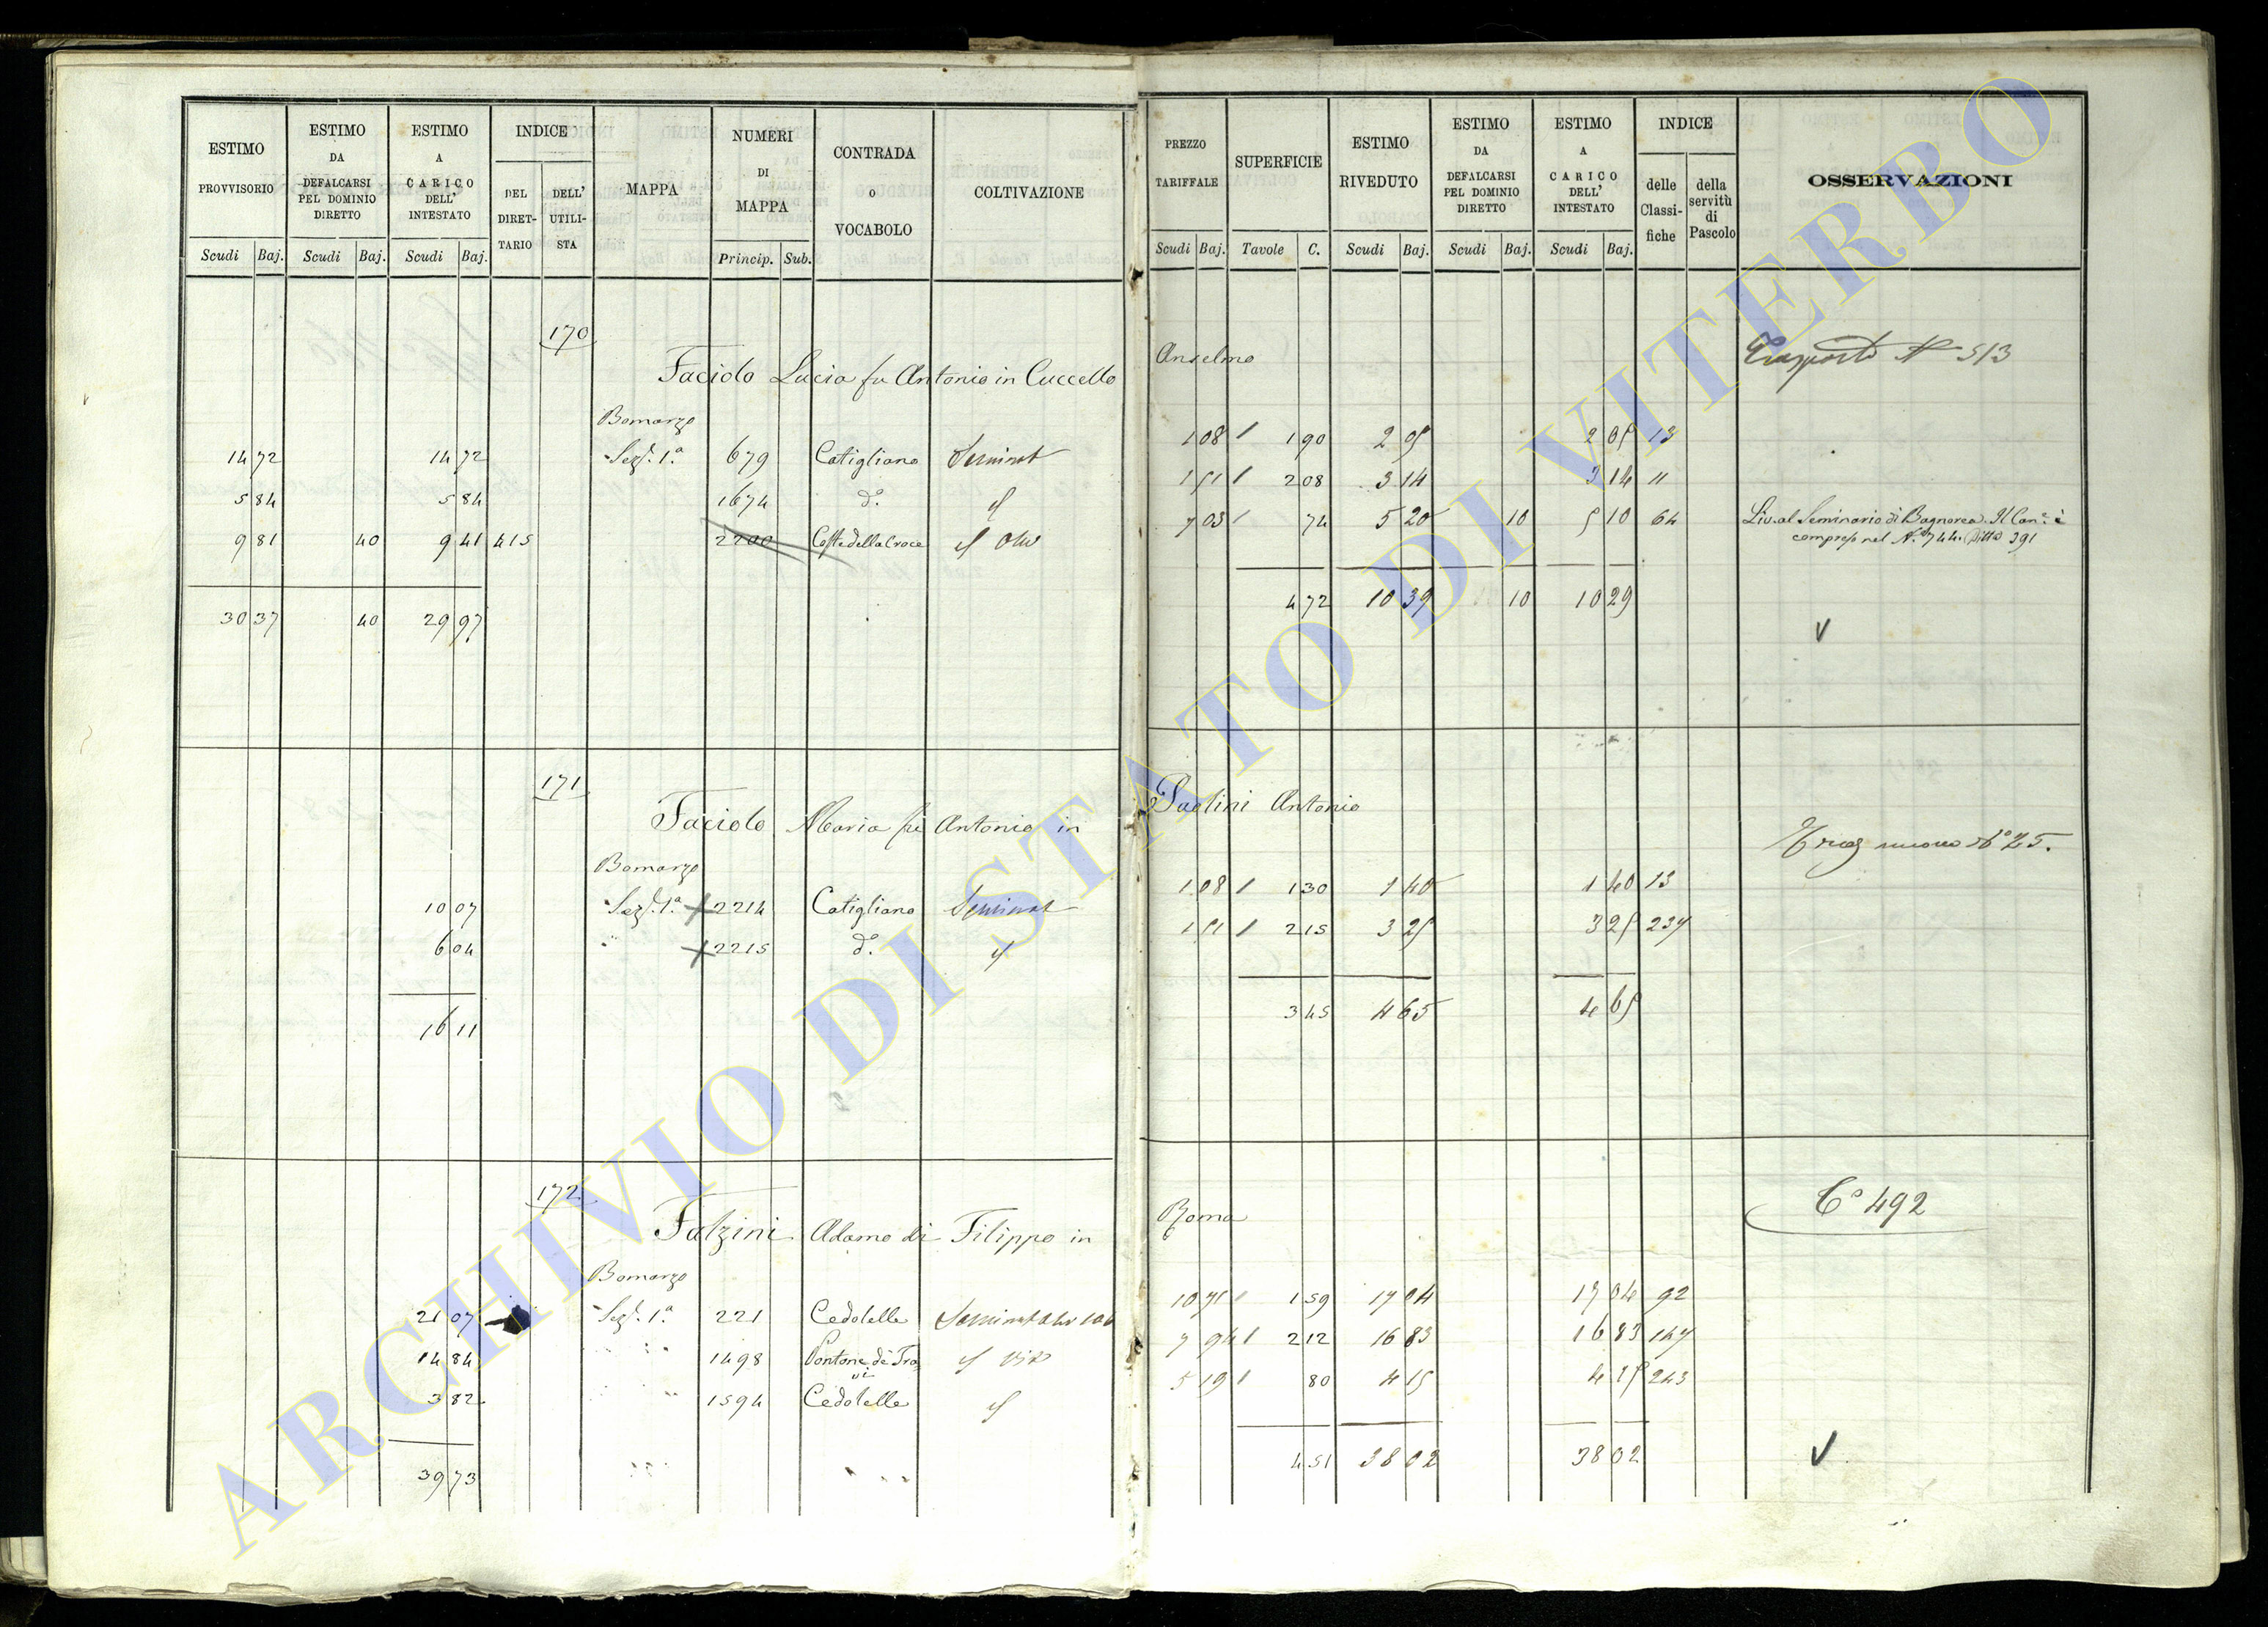 ESTIMO PROVVISORIO Scudi Baj.
ESTIMO DA DEFALCARSI PEL DOMINIO DIRETTO Scudi Baj.
ESTIMO A CARICO DELL' INTESTATO Scudi Baj.
INDICE DEL DIRET- TARIO DELL' UTILI- STA
MAPPA
NUMERI DI MAPPA Princip. Sub.
CONTRADA o VOCABOLO
COLTIVAZIONE
PREZZO TARIFFALE Scudi Baj.
SUPERFICIE Tavole C.
ESTIMO RIVEDUTO Scudi Baj.
ESTIMO DA DEFALCARSI PEL DOMINIO DIRETTO Scudi Baj.
ESTIMO A CARICO DELL' INTESTATO Scudi Baj.
INDICE delle Classi- fiche della servitù di Pascolo
OSSERVAZIONI
170
Faciolo Lucia fu Antonio in Cuccello Anselmo
Trasporto N 513
Bomarzo
14 72 14 72 Sez. 1.ª 679 Catigliano Seminat 1 08 1 90 2 05 2 05 13
5 84 5 84 1674 d.º 1 51 2 08 3 14 3 14 11
9 81 40 9 41 415 2200 Coste della Croce Oliv 7 03 74 5 20 10 5 10 64 Liv. al Seminario di Bagnorea. Il Can.e è
compreso nel N. 744. Ditta 391
30 37 40 29 97 4 72 10 39 10 10 29
V
171
Faciolo Maria fu Antonio in Paolini Antonio
nuovo N° 25.
Bomarzo
10 07 Sez. 1.ª 2214 Catigliano Seminat 1 08 1 30 1 40 1 40 13
6 04 " 2215 d.º 1 51 2 15 3 25 3 25 237
16 11 3 45 4 65 4 65
172
Falzini Adamo di Filippo in Roma
C° 492
Bomarzo
21 07 Sez. 1.ª 221 Cedolelle 10 71 1 59 17 04 17 04 92
14 84 " " 1498 Pontone di Tro 7 94 2 12 16 83 16 83 147
3 82 " " 1594 Cedolelle 5 19 80 4 15 4 15 243
39 73 4 51 38 02 38 02
V
ARCHIVIO DI STATO DI VITERBO